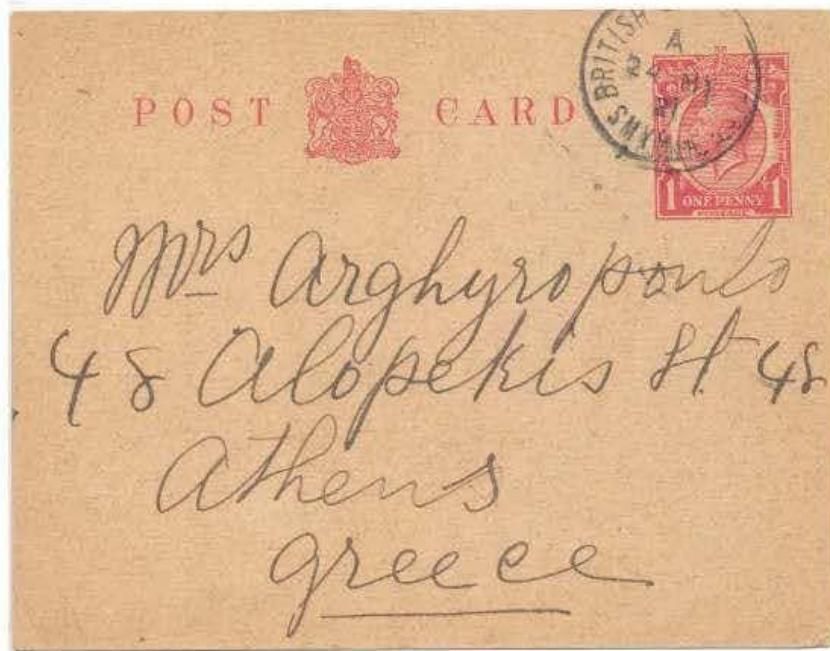 POST CARD
BRITISH
A
SMYRNA
1 ONE PENNY 1
POSTAGE
Mrs Arghyropoulo
48 Alopekis St. 48
Athens
Greece